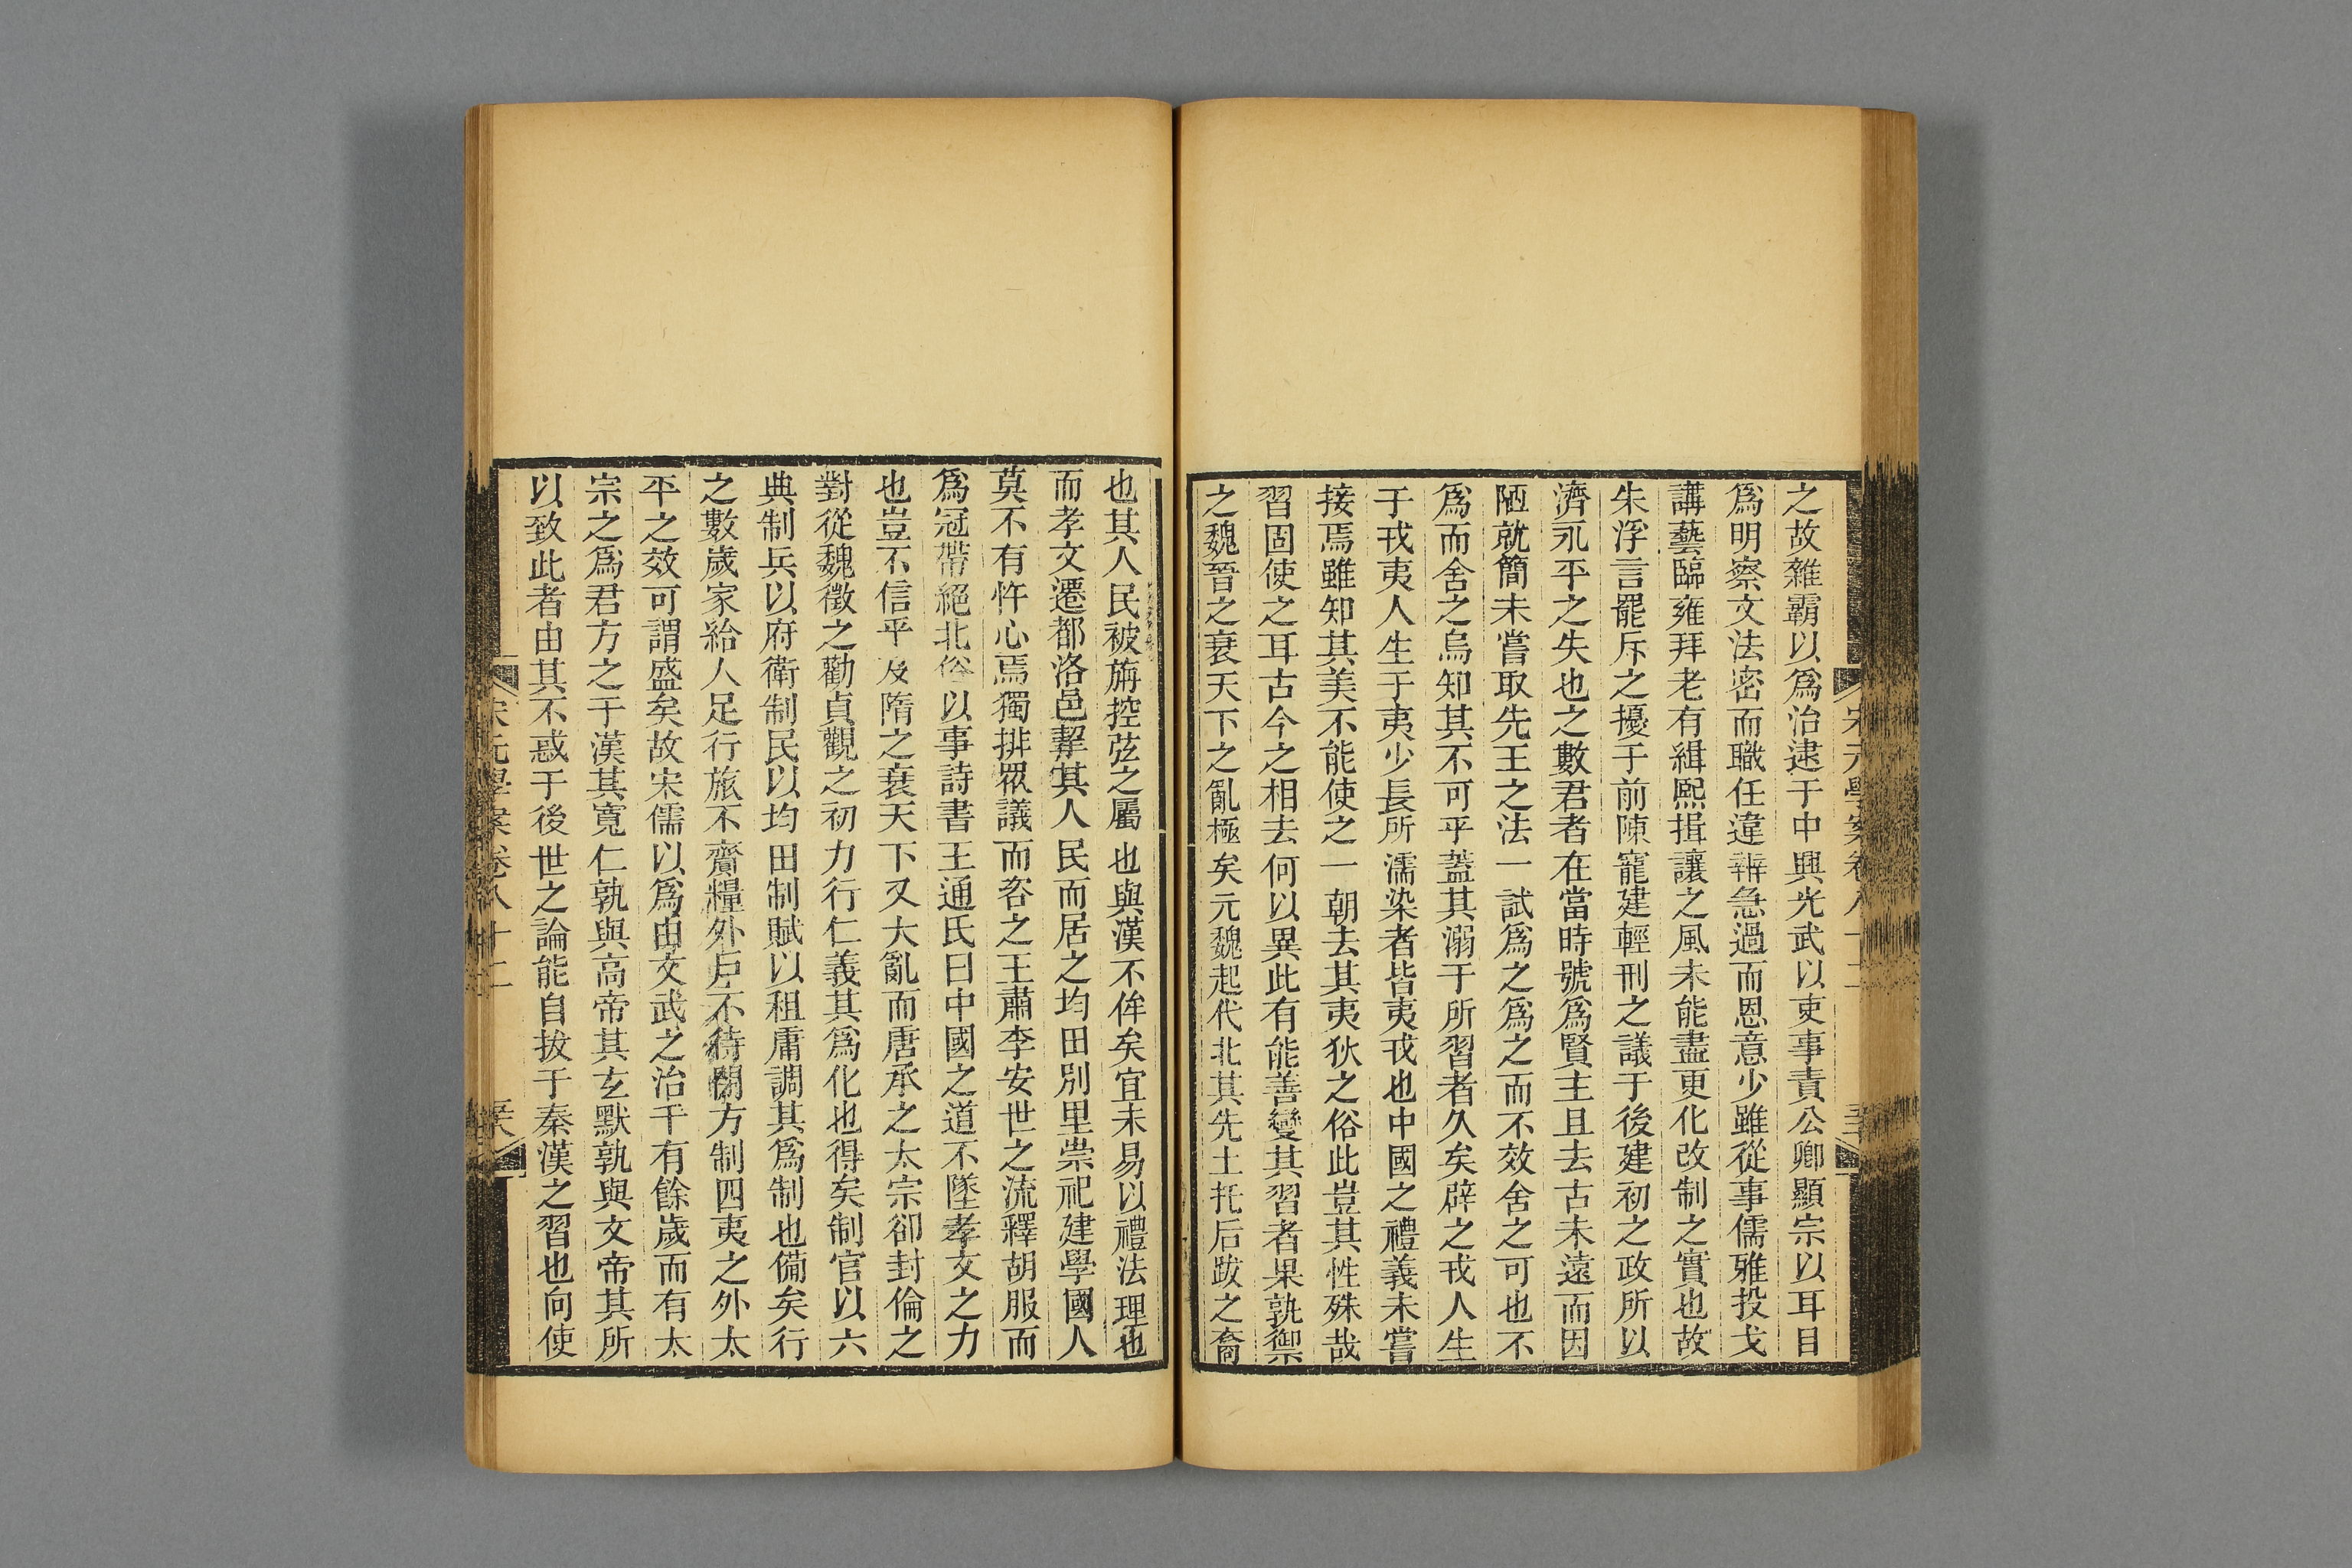 之故雜霸以爲治逮于中興光武以吏事責公卿顯宗以耳目
爲明察文法密而職任違辨急過而恩意少雖從事儒雅投戈
講藝臨雍拜老有緝熙揖讓之風未能盡更化改制之實也故
朱浮言罷斥之擾于前陳寵建輕刑之議于後建初之政所以
濟永平之失也之數君者在當時號爲賢主且去古未遠而因
陋就簡未嘗取先王之法一試爲之爲之而不效舍之可也不
爲而舍之烏知其不可乎蓋其溺于所習者久矣辟之戎人生
于戎夷人生于夷少長所濡染者皆夷戎也中國之禮義未嘗
接焉雖知其美不能使之一朝去其夷狄之俗此豈其性殊哉
習固使之耳古今之相去何以異此有能善變其習者果孰禦
之魏晉之衰天下之亂極矣元魏起代北其先土托后跋之裔
也其人民被旃控弦之屬也與漢不侔矣宜未易以禮法理也
而孝文遷都洛邑挈其人民而居之均田別里崇祀建學國人
莫不有忤心焉獨排眾議而咨之王肅李安世之流釋胡服而
爲冠帶絕北俗以事詩書王通氏曰中國之道不墜孝文之力
也豈不信乎及隋之衰天下又大亂而唐承之太宗卻封倫之
對從魏徵之勸貞觀之初力行仁義其爲化也得矣制官以六
典制兵以府衛制民以均田制賦以租庸調其爲制也備矣行
之數歲家給人足行旅不齎糧外戶不待閉方制四夷之外太
平之效可謂盛矣故宋儒以爲由文武之治千有餘歲而有太
宗之爲君方之于漢其寬仁孰與高帝其玄默孰與文帝其所
以致此者由其不惑于後世之論能自拔于秦漢之習也向使
宋元學案卷八十二